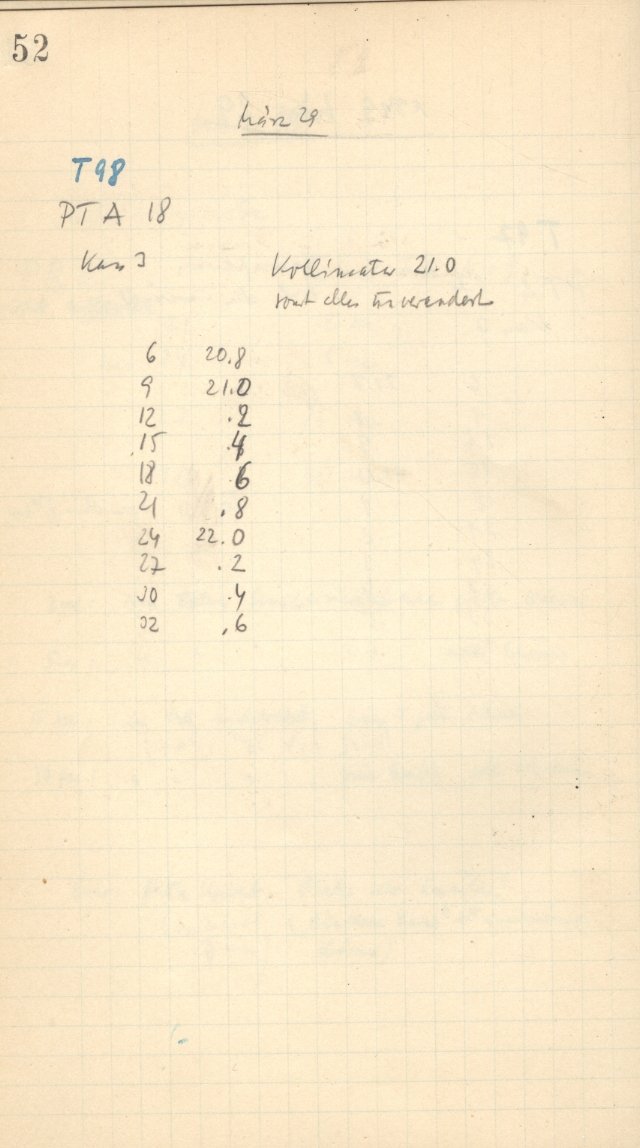 52
März 29
T98
PT A 18
Kass 3 Kollimator 21.0
sonst alles unverändert
6 20.8
9 21.0
12 .2
15 .4
18 6
21 .8
24 22.0
27 .2
30 .4
32 .6